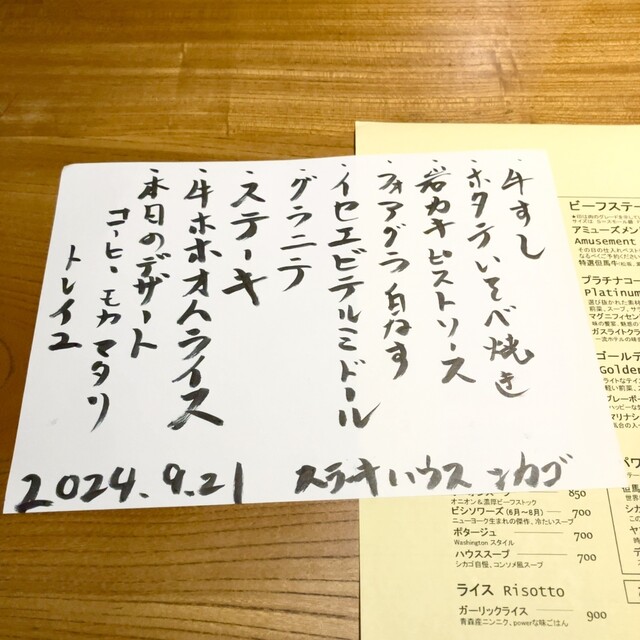 ・牛すし
・ホタテいそべ焼き
・岩カキピストソース
・フォアグラ白なす
・イセエビテルミドール
・グラニテ
・ステーキ
・牛ホホオムライス
・本日のデザート
コーヒーモカマタリ
トレイユ
2024.9.21 ステーキハウス シカゴ
ビーフステー
アミューズメン
Amusement
特選但馬牛
プラチナコー
Platinum
マグニフィセン
ガスライトクラ
ゴールデ
Golde
グレーボー
マリナシ
パワ
850
オニオン&濃厚ビーフストック
ビシソワーズ(6月～8月) 700
ニューヨーク生まれの傑作、冷たいスープ
ポタージュ 700
Washington スタイル
ハウススープ 700
シカゴ自慢、コンソメ風スープ
ライス Risotto
ガーリックライス 900
青森産ニンニク、powerな味ごはん